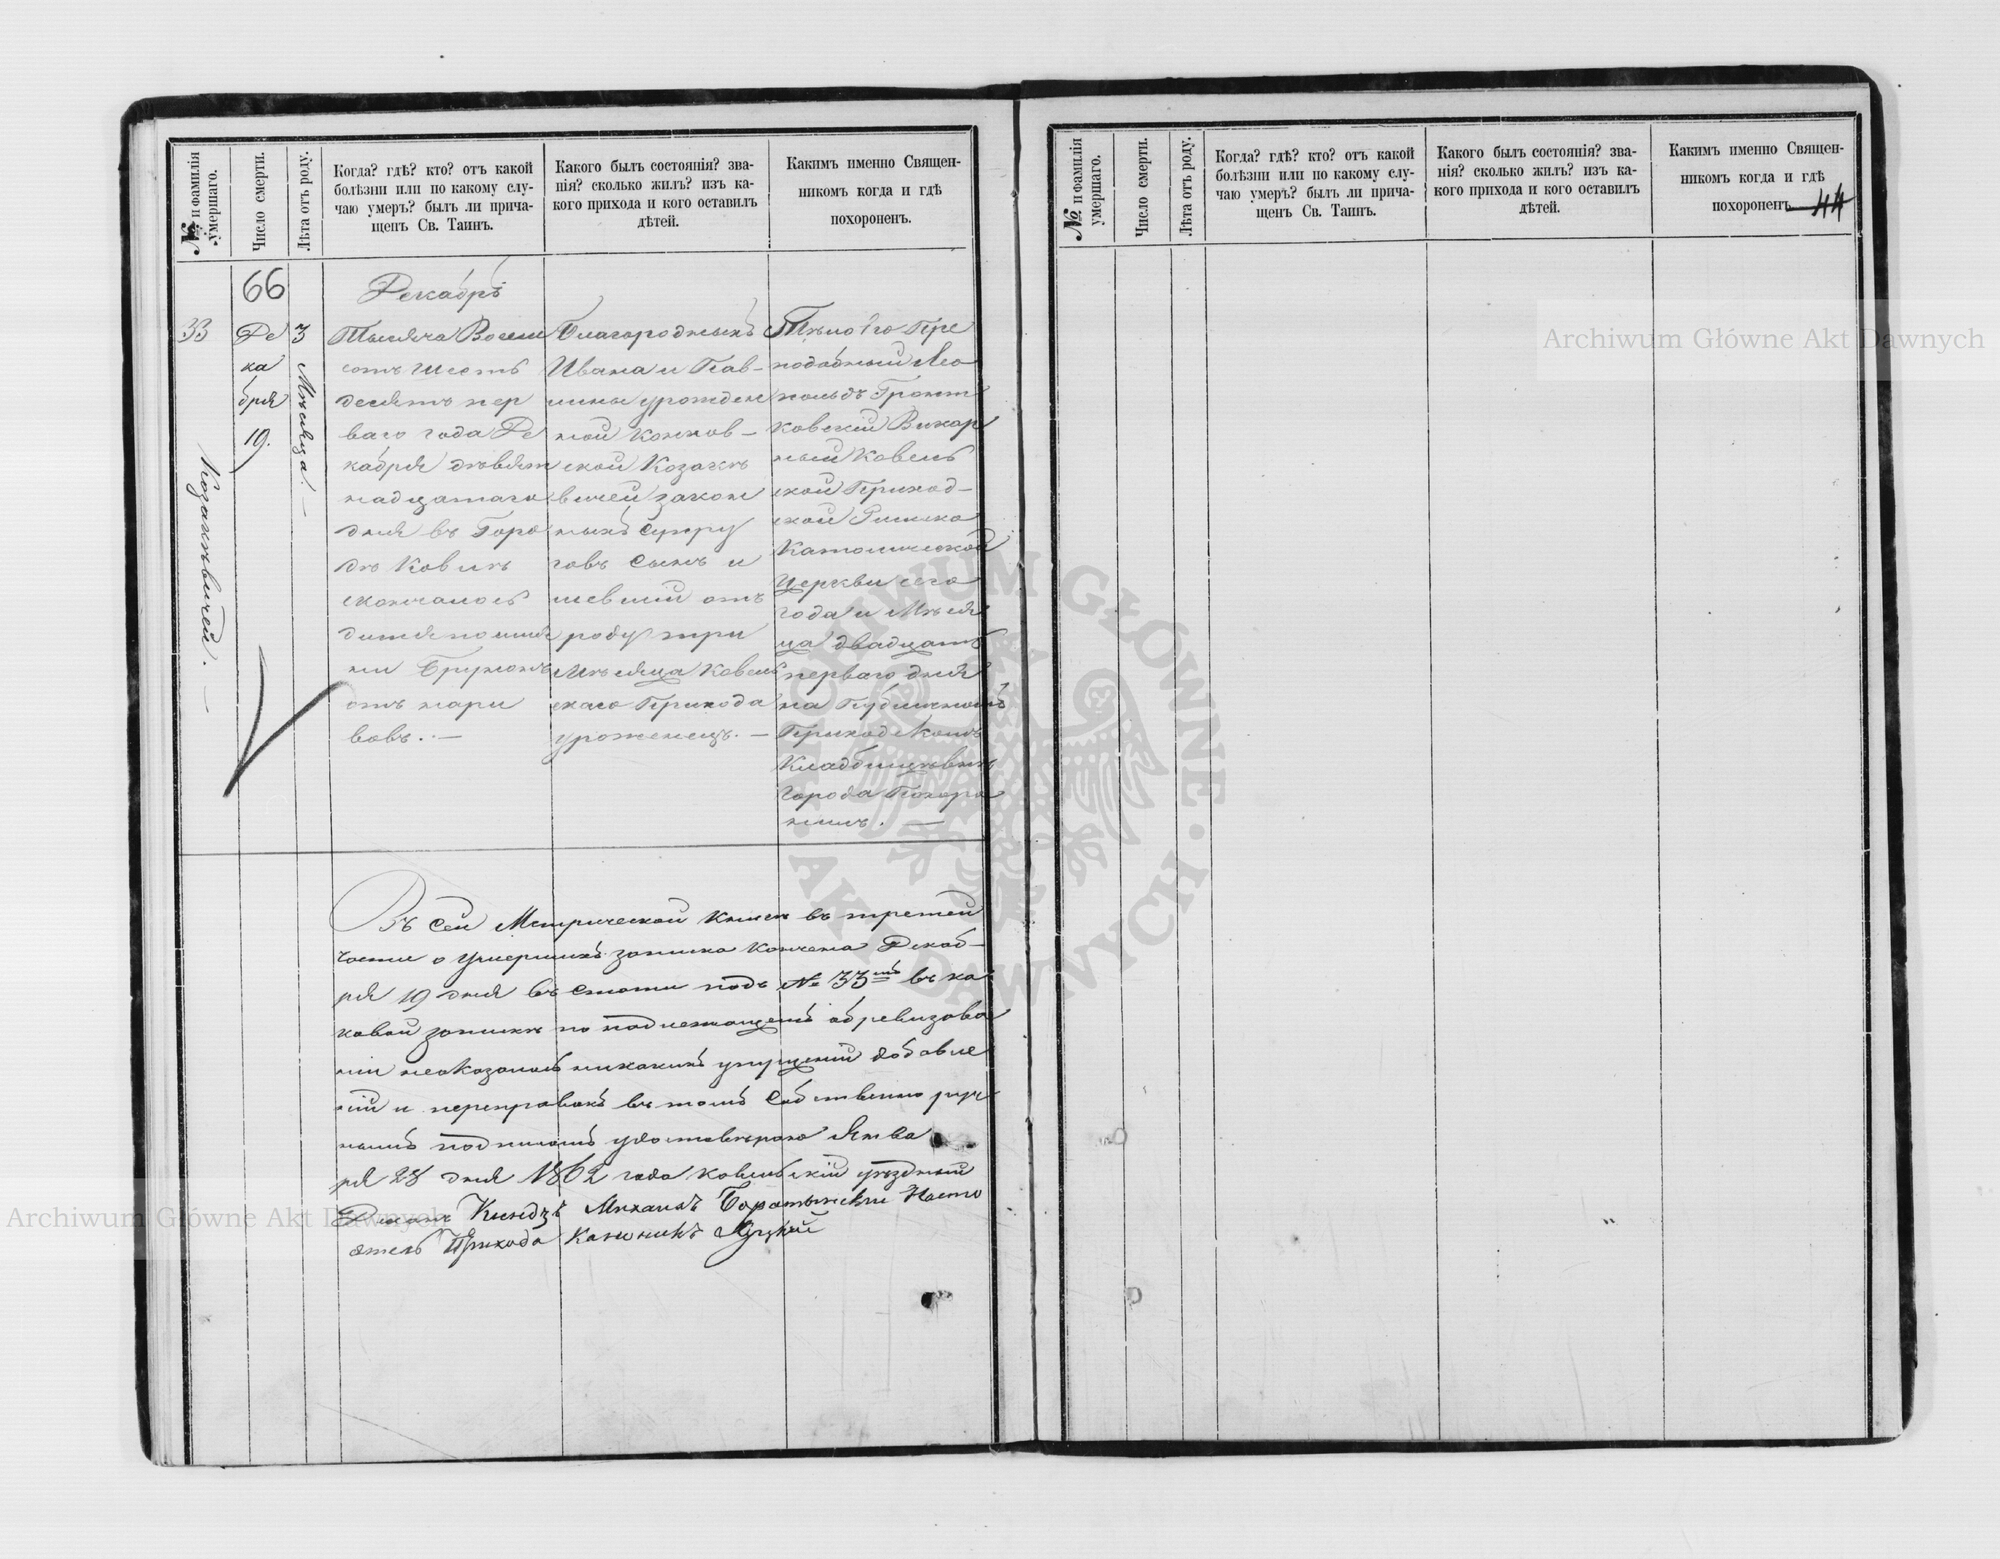 № и фамилія умершаго.
Число смерти.
Лѣта отъ роду.
Когда? гдѣ? кто? отъ какой
болѣзни или по какому слу-
чаю умеръ? былъ ли прича-
щенъ Св. Таинъ.
Какого былъ состоянія? зва-
нія? сколько жилъ? изъ ка-
кого прихода и кого оставилъ
дѣтей.
Каким именно Священ-
никомъ когда и гдѣ
похороненъ.
66
33
Козакѣвичей. —
Де
ка
бря
19.
3
Мѣсяца. —
Декабрь
Тысяча Восем
сотъ шесть
десятъ пер
ваго года Де
кабря девят
надцатаго
дня въ Горо
дѣ Ковлѣ
скончалось
дитя по име
ни
отъ нары
вовъ. —
Благородныхъ
Ивана и Пав-
лины урожден
ной
ской Козакѣ
вичей закон
ныхъ супру
говъ сынъ и
мевший отъ
роду три
Мѣсяца Ковель
скаго Прихода
уроженецъ. —
Тѣло его Пре
подобный Лео
польдъ
ковскій Викар
ный Ковель
ской Приход-
ской Римско
Католической
Церкви сего
года и Мѣся
ца двадцать
перваго дня
на Публичномъ
Приходскомъ
Кладбищѣ
города Похоро
нилъ. —
Въ сей Метрической книгѣ въ третей
части о умершихъ записка кончена Декаб-
ря 19 дня въ статьи подъ № 33мъ въ ка-
ковой запискѣ по надлежащемъ обревизова
ніи неоказалось никакихъ упущеній добавле
ній и переправокъ въ томъ собственно руч
нымъ подписомъ удостовѣряю Января
28 дня 1862 года Ковельскій уѣздный
Деканъ Ксіондзъ Михаилъ Боратынскій Насто
ятель Прихода Каноникъ Луцкій
№ и фамилія умершаго.
Число смерти.
Лѣта отъ роду.
Когда? гдѣ? кто? отъ какой
болѣзни или по какому слу-
чаю умеръ? былъ ли прича-
щенъ Св. Таинъ.
Какого былъ состоянія? зва-
нія? сколько жилъ? изъ ка-
кого прихода и кого оставилъ
дѣтей.
Каким именно Священ-
никомъ когда и гдѣ
похороненъ.
44
Archiwum Główne Akt Dawnych
Archiwum Główne Akt Dawnych
ARCHIWUM GŁÓWNE · AKT DAWNYCH ·